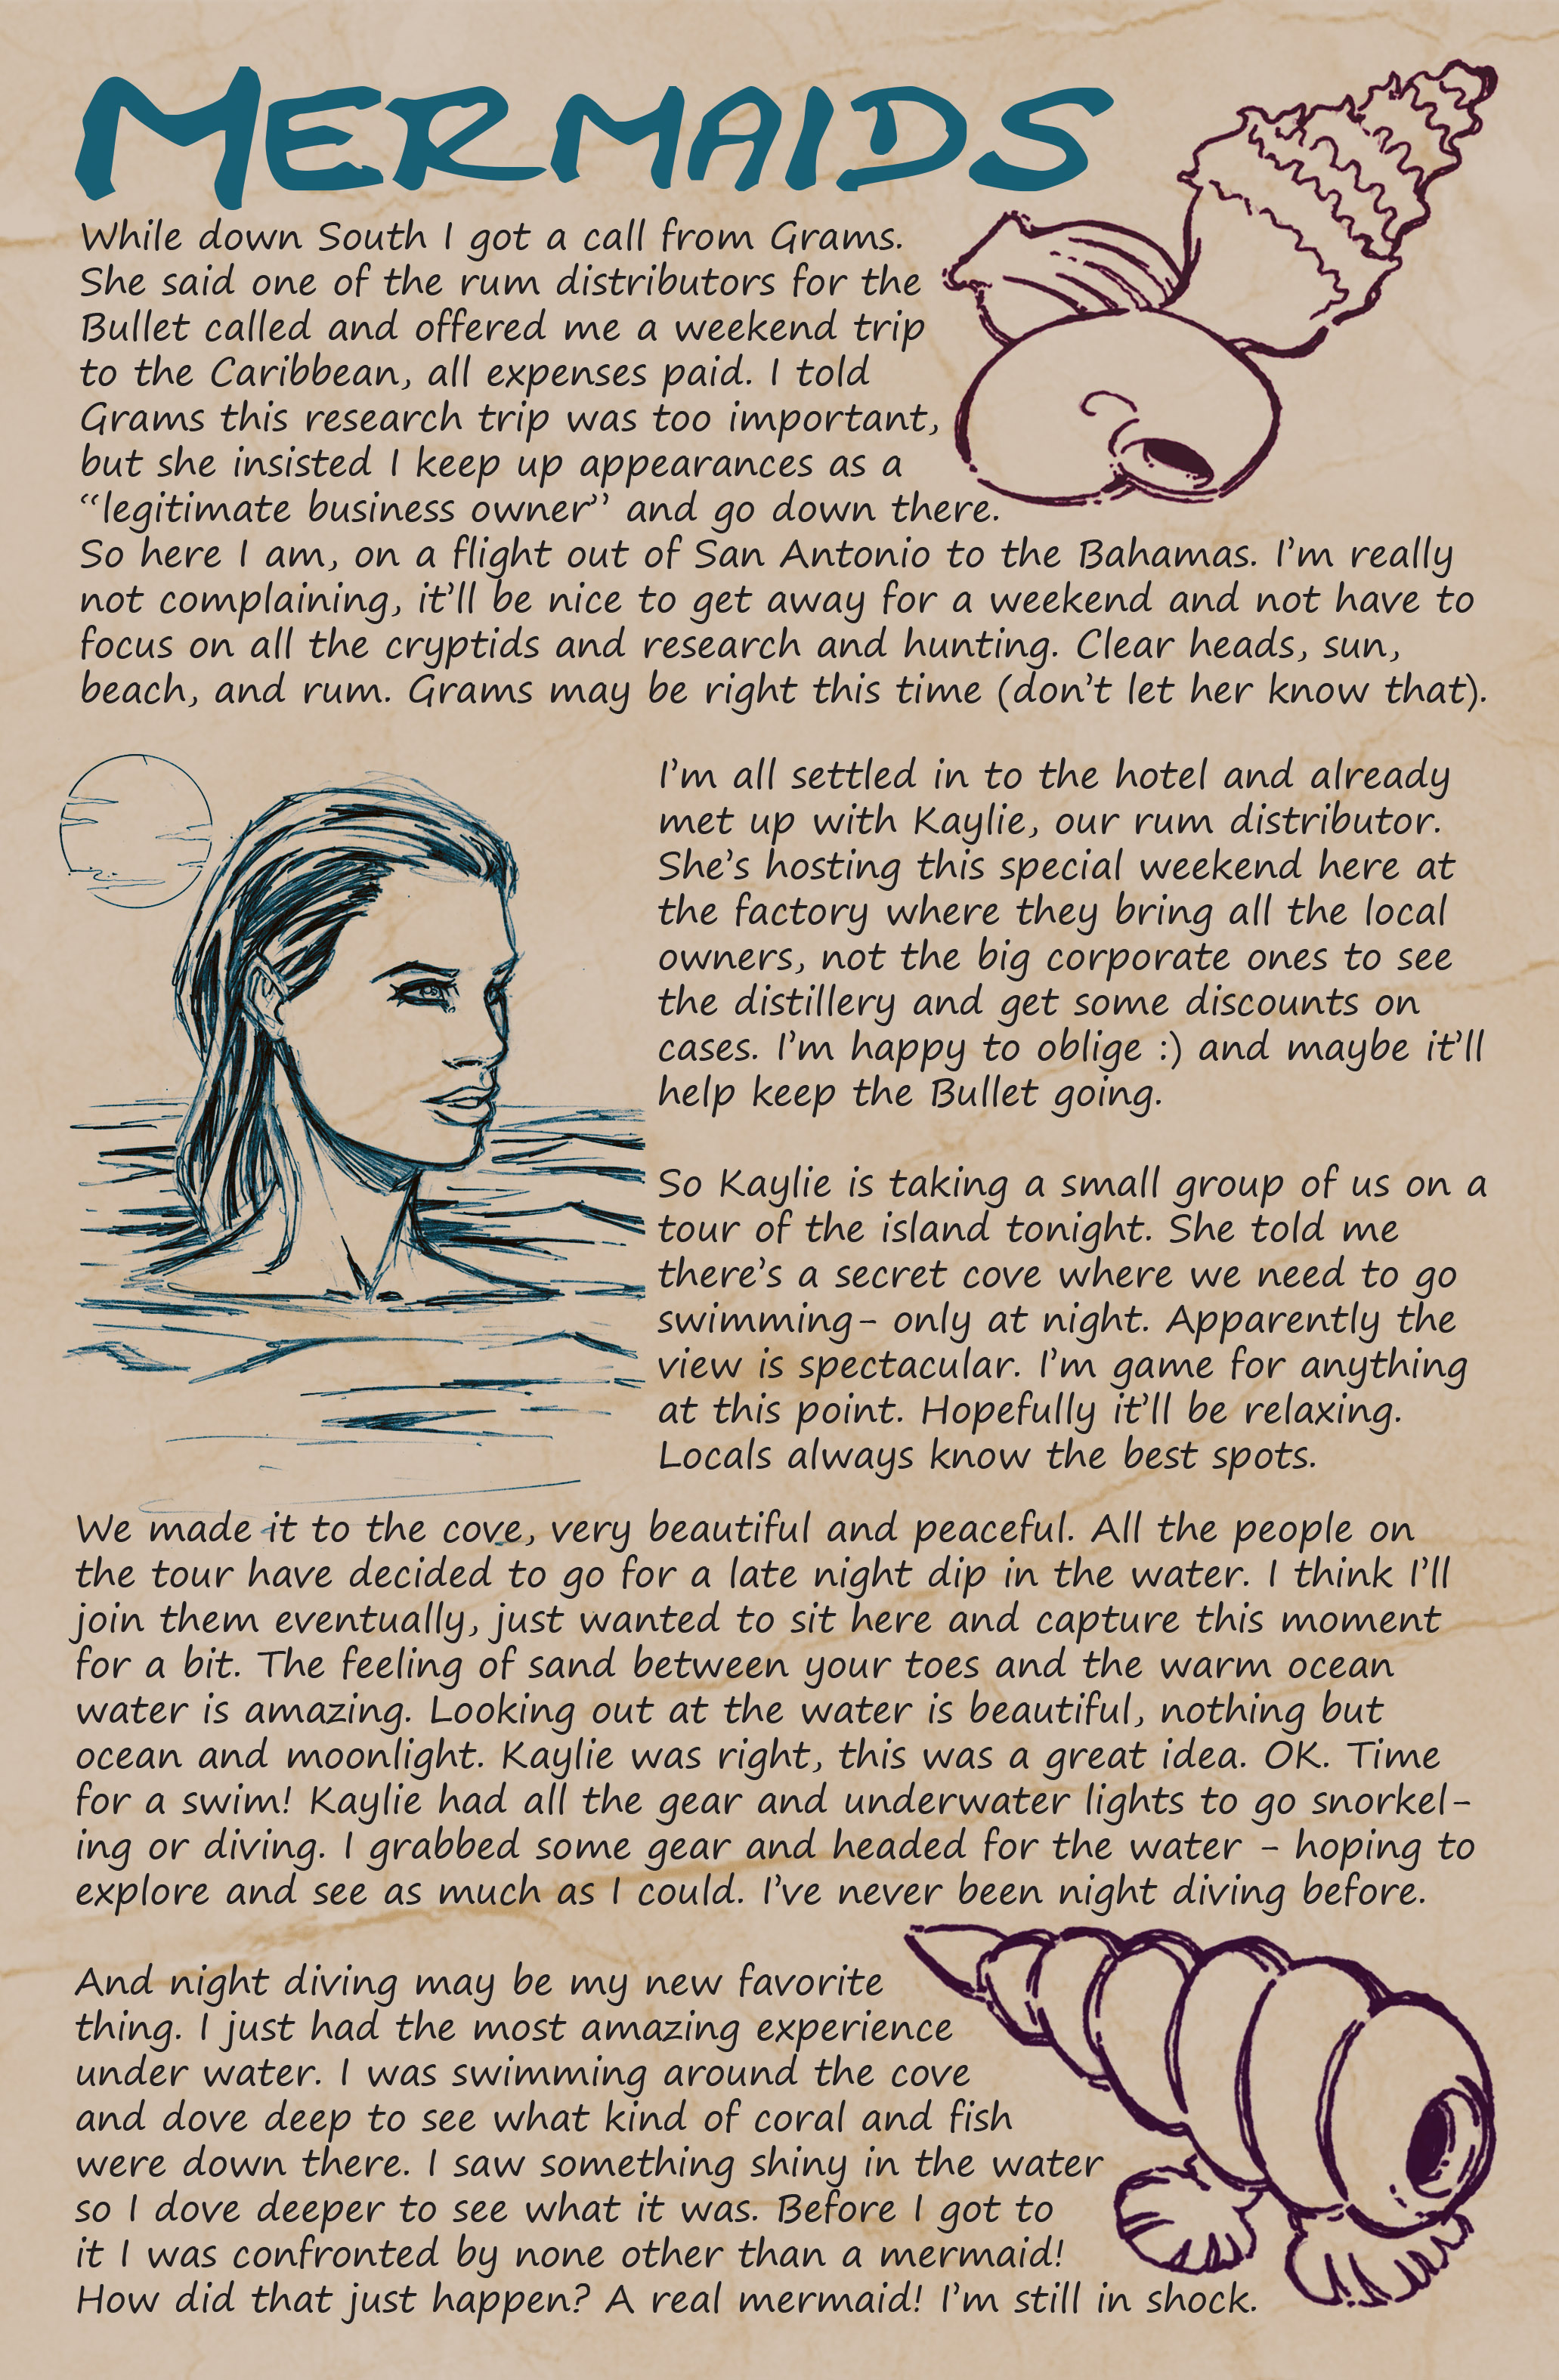 MERMAIDS
While down South I got a call from Grams.
She said one of the rum distributors for the
Bullet called and offered me a weekend trip
to the Caribbean, all expenses paid. I told
Grams this research trip was too important,
but she insisted I keep up appearances as a
“legitimate business owner” and go down there.
So here I am, on a flight out of San Antonio to the Bahamas. I’m really
not complaining, it’ll be nice to get away for a weekend and not have to
focus on all the cryptids and research and hunting. Clear heads, sun,
beach, and rum. Grams may be right this time (don’t let her know that).
I’m all settled in to the hotel and already
met up with Kaylie, our rum distributor.
She’s hosting this special weekend here at
the factory where they bring all the local
owners, not the big corporate ones to see
the distillery and get some discounts on
cases. I’m happy to oblige :) and maybe it’ll
help keep the Bullet going.
So Kaylie is taking a small group of us on a
tour of the island tonight. She told me
there’s a secret cove where we need to go
swimming- only at night. Apparently the
view is spectacular. I’m game for anything
at this point. Hopefully it’ll be relaxing.
Locals always know the best spots.
We made it to the cove, very beautiful and peaceful. All the people on
the tour have decided to go for a late night dip in the water. I think I’ll
join them eventually, just wanted to sit here and capture this moment
for a bit. The feeling of sand between your toes and the warm ocean
water is amazing. Looking out at the water is beautiful, nothing but
ocean and moonlight. Kaylie was right, this was a great idea. OK. Time
for a swim! Kaylie had all the gear and underwater lights to go snorkel-
ing or diving. I grabbed some gear and headed for the water - hoping to
explore and see as much as I could. I’ve never been night diving before.
And night diving may be my new favorite
thing. I just had the most amazing experience
under water. I was swimming around the cove
and dove deep to see what kind of coral and fish
were down there. I saw something shiny in the water
so I dove deeper to see what it was. Before I got to
it I was confronted by none other than a mermaid!
How did that just happen? A real mermaid! I’m still in shock.